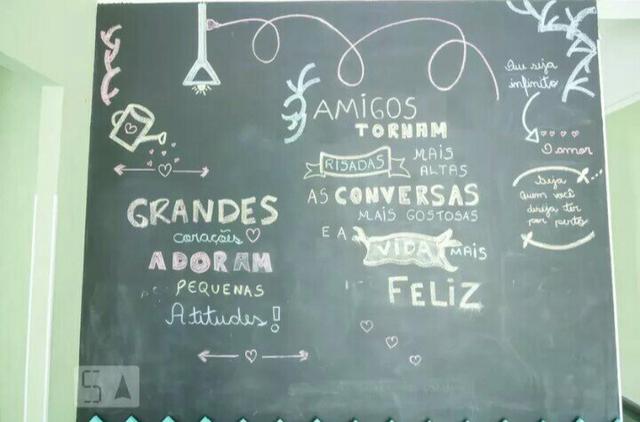 GRANDES
corações
ADORAM
PEQUENAS
Atitudes!
AMIGOS
TORNAM
RISADAS MAIS
ALTAS
AS CONVERSAS
MAIS GOSTOSAS
E A VIDA MAIS
FELIZ
Que seja
infinito
O amor
Seja
quem você
deseja ter
por perto
5